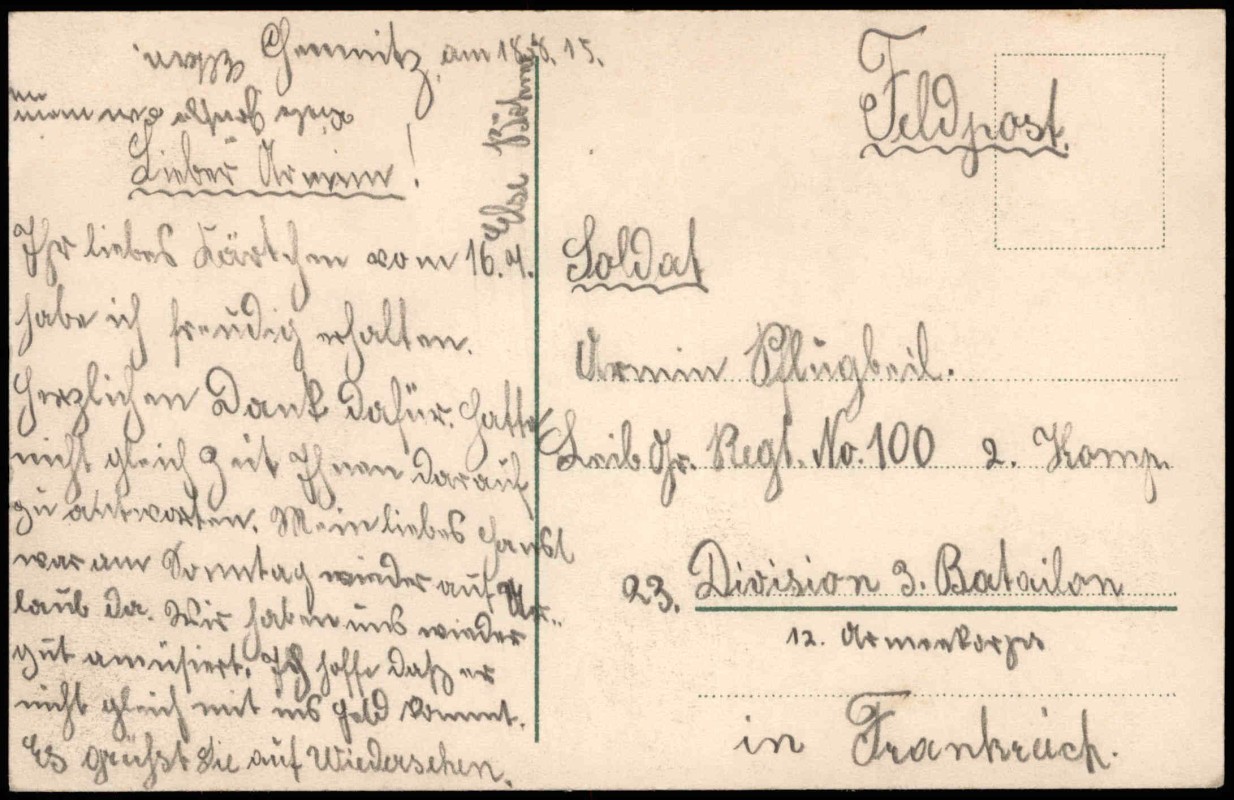 Chemnitz, am 18.8.15.
Lieber Armin!
Ihr liebes Kärtchen vom 16.4.
habe ich freudig erhalten.
Herzlichen Dank dafür. Hatte
nicht gleich Zeit Ihnen darauf
zu antworten. Mein liebes Hansl
war am Sonntag wieder auf Ur-
laub da. Wir haben uns wieder
gut amüsiert. Ich hoffe daß er
nicht gleich mit ins Feld kommt.
Es grüßt Sie auf Wiedersehen.
Else Böhme
Viele Grüße von meinen
Eltern
Feldpost.
Soldat
Armin Pflugbeil.
Leib Gr. Regt. No. 100 2. Komp.
23. Division 3. Batailon
12. Armeekorps
in Frankreich.